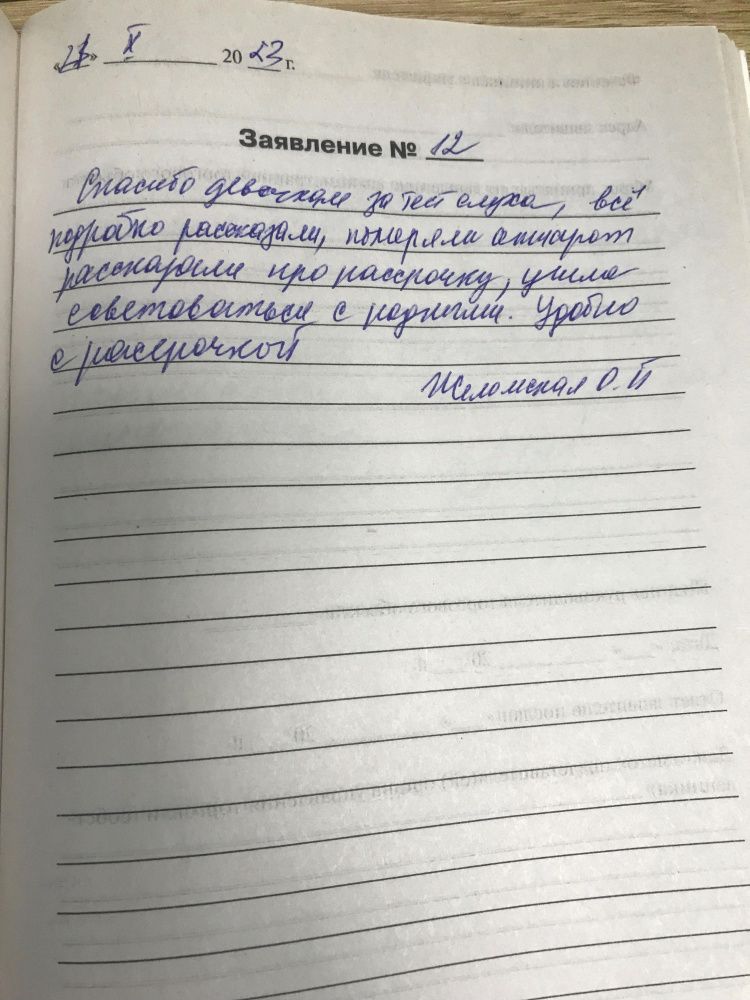 « » X 2023 г.
Заявление № 12
Спасибо девочкам за тест слуха, всё
подробно рассказали, померяли аппарат
рассказали про рассрочку, ушла
советоваться с родными. Удобно
с рассрочкой
О. П